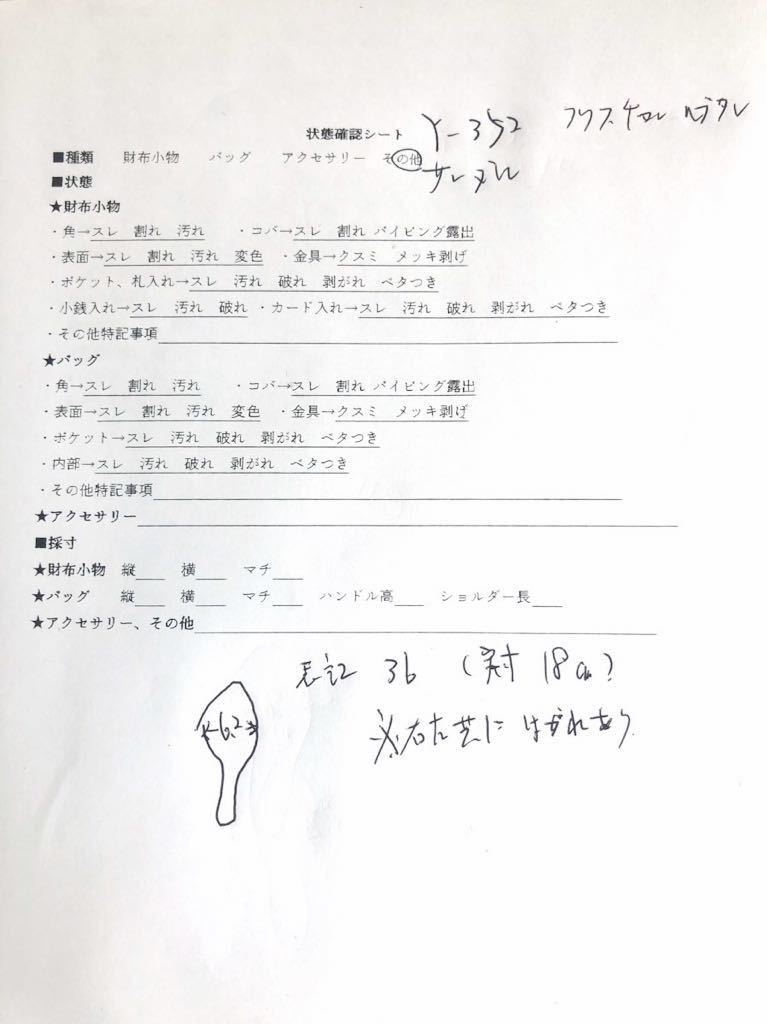 状態確認シート Y-352
■種類 財布小物 バッグ アクセサリー その他
■状態
★財布小物
・角→スレ 割れ 汚れ ・コバ→スレ 割れ パイピング露出
・表面→スレ 割れ 汚れ 変色 ・金具→クスミ メッキ剥げ
・ポケット、札入れ→スレ 汚れ 破れ 剥がれ ベタつき
・小銭入れ→スレ 汚れ 破れ ・カード入れ→スレ 汚れ 破れ 剥がれ ベタつき
・その他特記事項
★バッグ
・角→スレ 割れ 汚れ ・コバ→スレ 割れ パイピング露出
・表面→スレ 割れ 汚れ 変色 ・金具→クスミ メッキ剥げ
・ポケット→スレ 汚れ 破れ 剥がれ ベタつき
・内部→スレ 汚れ 破れ 剥がれ ベタつき
・その他特記事項
★アクセサリー
■採寸
★財布小物 縦 横 マチ
★バッグ 縦 横 マチ ハンドル高 ショルダー長
★アクセサリー、その他
表記 36 (実寸 18cm)
6.2
※右左 にはがれあり